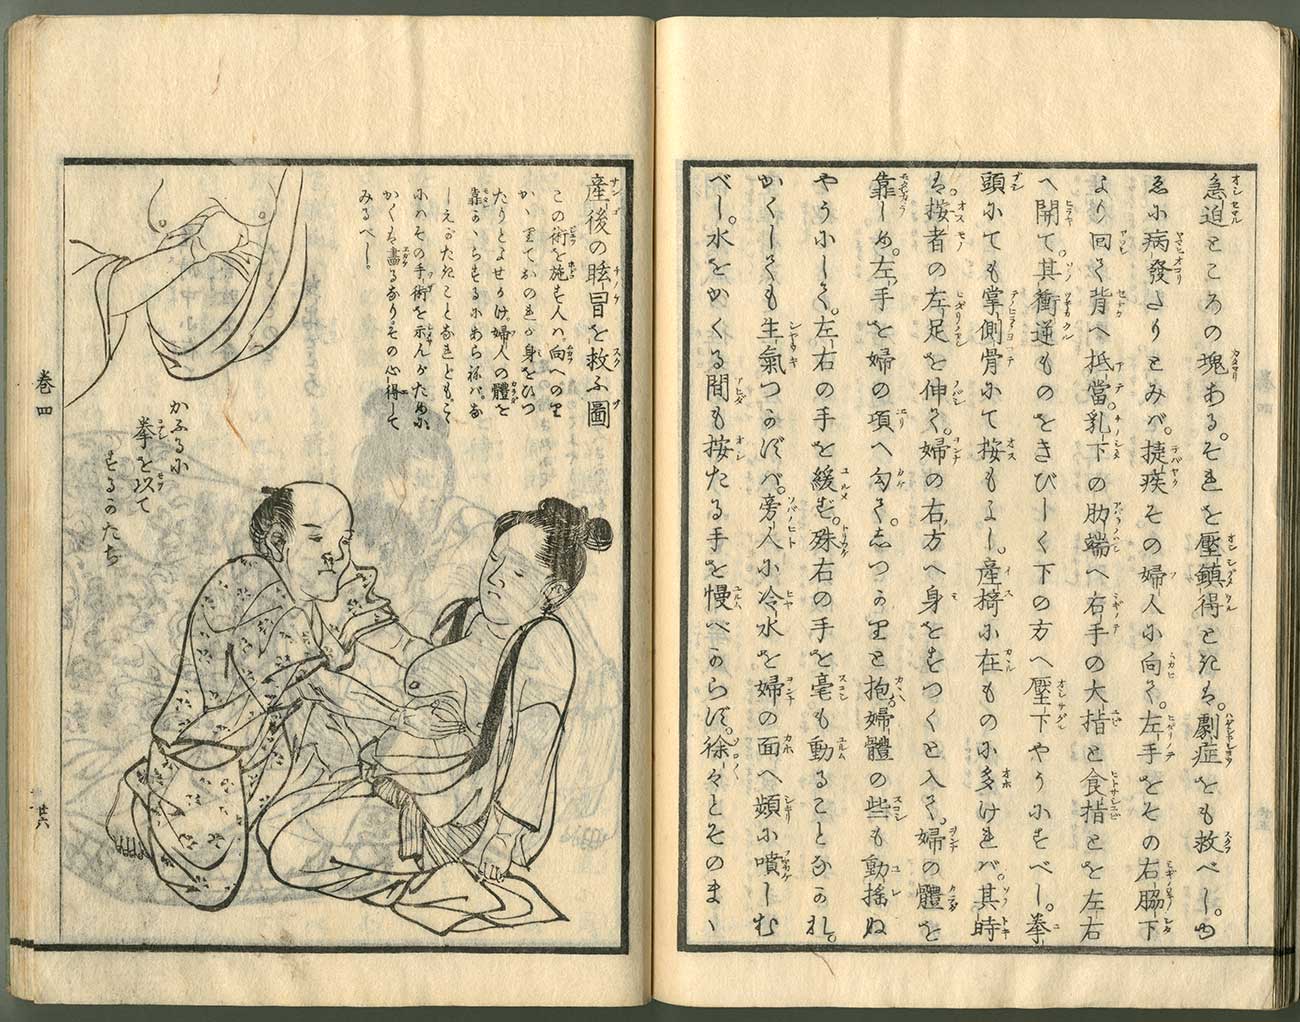 急迫ところの塊ある。それを壓鎮得ときは。劇症をも救べし。ゆ
ゑに病發たりとみバ。捷疾その婦人に向て。左手をその右脇下
より回て背へ抵當。乳下の肋端へ右手の大指と食指とを左右
へ開て。其衝逆ものをきびしく下の方へ壓下やうにすべし。拳
頭にても掌側骨にて按もよし。産椅に在もの小多けれバ。其時
は。按者の左足を伸て。婦の右方へ身をすつくと入て。婦の體を
靠しめ。左手を婦の項へ勾て。しつかりと抱。婦體の些も動揺ぬ
やうにして。左右の手を緩ず。殊右の手を毫も動ることなかれ。
かくしても生氣つかずバ。旁人に冷水を婦の面へ頻に噴しむ
べし。水をかくる間も按たる手を慢べからず。徐々とそのまゝ
産後の眩冒を救ふ圖
この術を施す人ハ向への
かゝりておのれが身をひつ
たりとよせかけ婦人の體を
靠かゝらするにあらねバ。な
しえがたきことなれども。こゝ
にハその手術を示んがために
かくは畫るなりその心得して
みるべし。
かふるに
拳を以て
するかたち
巻四
廿六